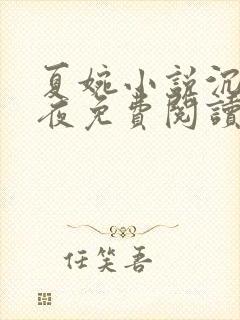 夏婉小説沉
夜免費閱讀
任笑吾